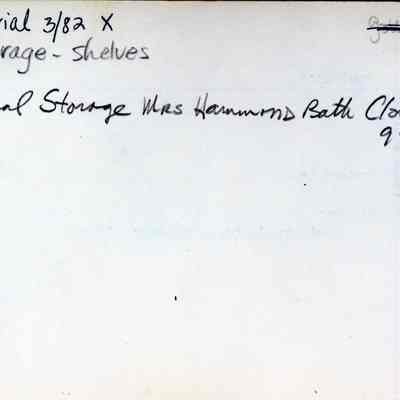 rial 3/82 X
rage - shelves
al Storage Mrs Hammond Bath Clo
9